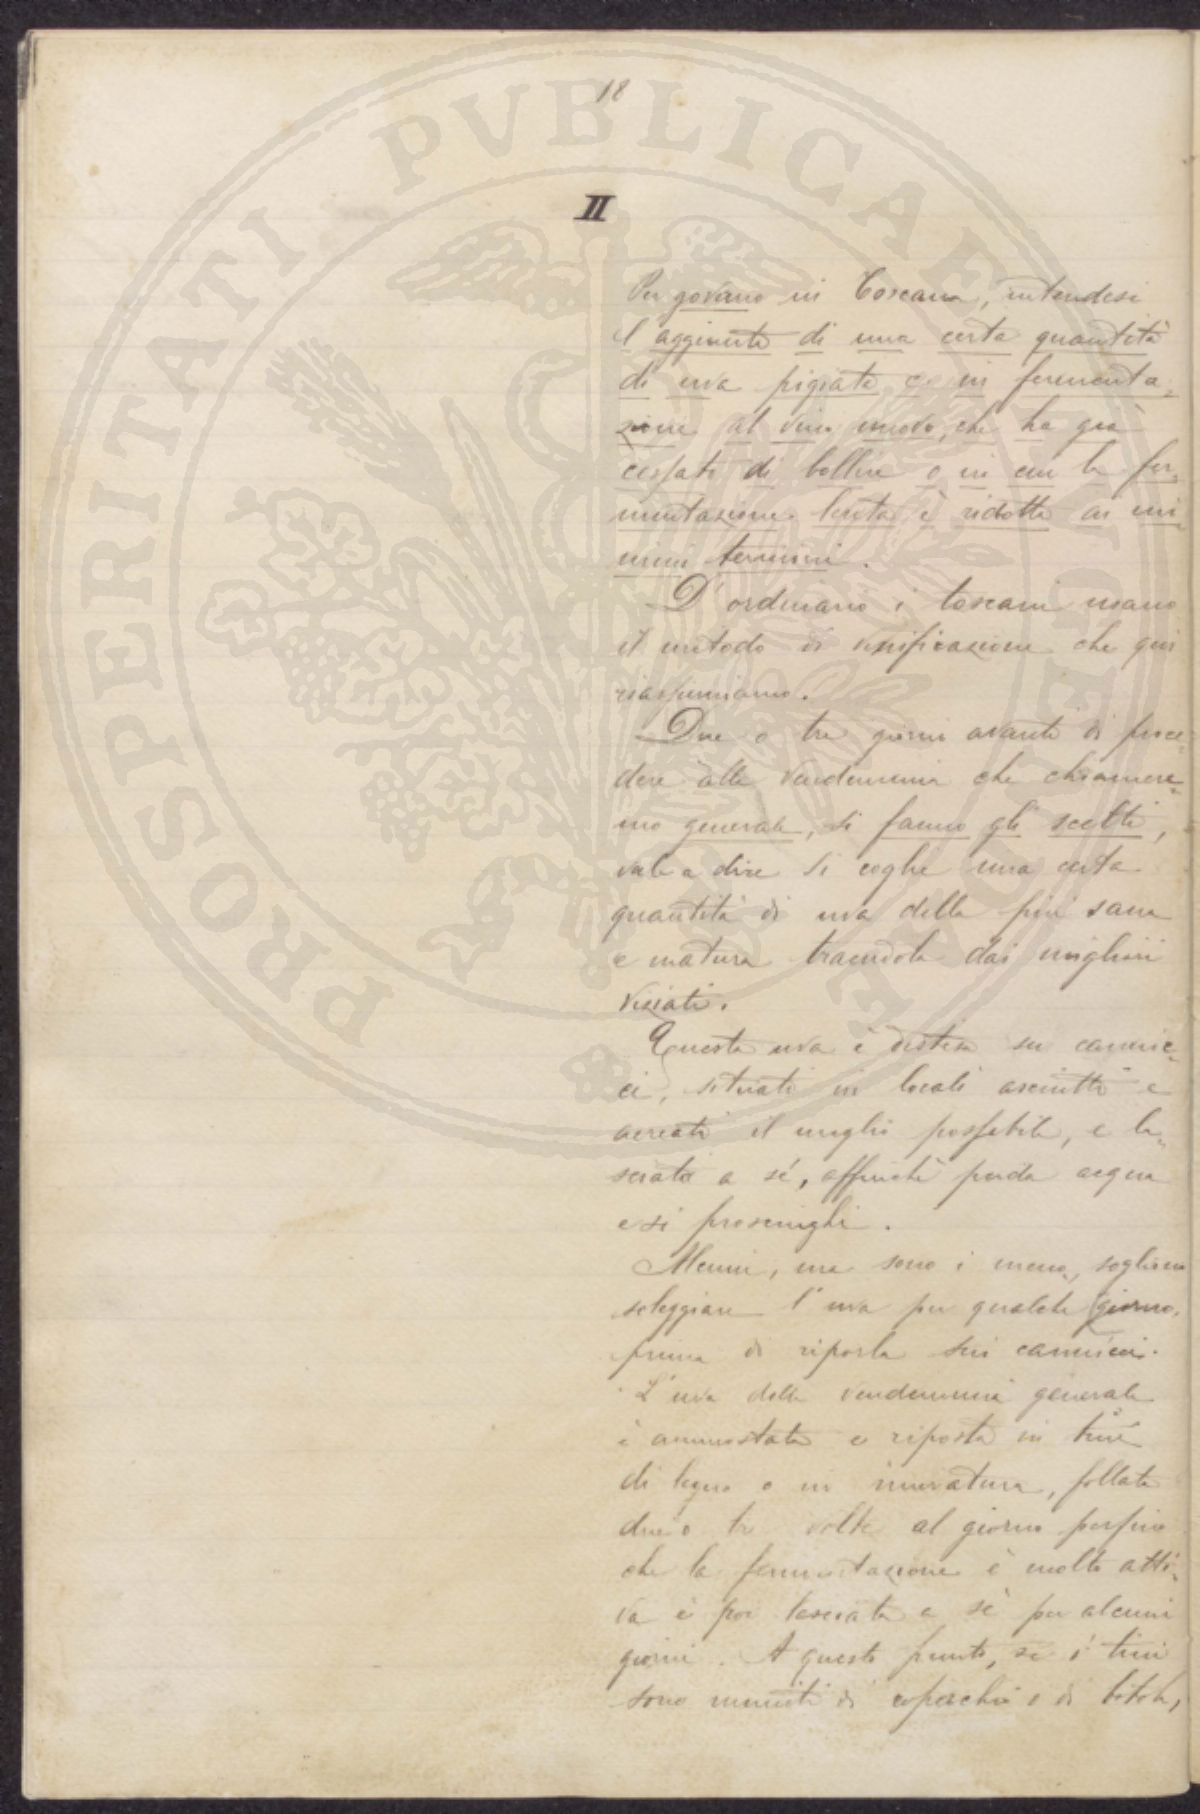 18
II
Per governo in Toscana, intendesi
l'aggiunta di una certa quantità
di uva pigiata e in fermenta-
zione al vino nuovo, che ha già
cessato di bollire o in cui la fer-
mentazione lenta è ridotta ai mi-
nimi termini.
D'ordinario i toscani usano
il metodo di vinificazione che qui
riassumiamo.
Due o tre giorni avanti di proce-
dere alla vendemmia che chiamere-
mo generale, si fanno gli scelti,
vale a dire si coglie una certa
quantità di uva della più sana
e matura traendola dai migliori
viziati.
Questa uva è distesa su cannic-
ci, situati in locali asciutti e
aereati il meglio possibile, e la-
sciata a sé, affinché perda acqua
e si prosciughi.
Alcuni, ma sono i meno, sogliono
soleggiare l'uva per qualche giorno,
prima di riporla sui cannicci.
L'uva della vendemmia generale
è ammostata e riposta in tini
di legno o in muratura, follata
due o tre volte al giorno perfino
che la fermentazione è molto atti-
va è poi lasciata a sè per alcuni
giorni. A questo punto, se i tini
sono muniti di coperchio o di botola,
PROSPERITATI PVBLICAE AVGENDAE